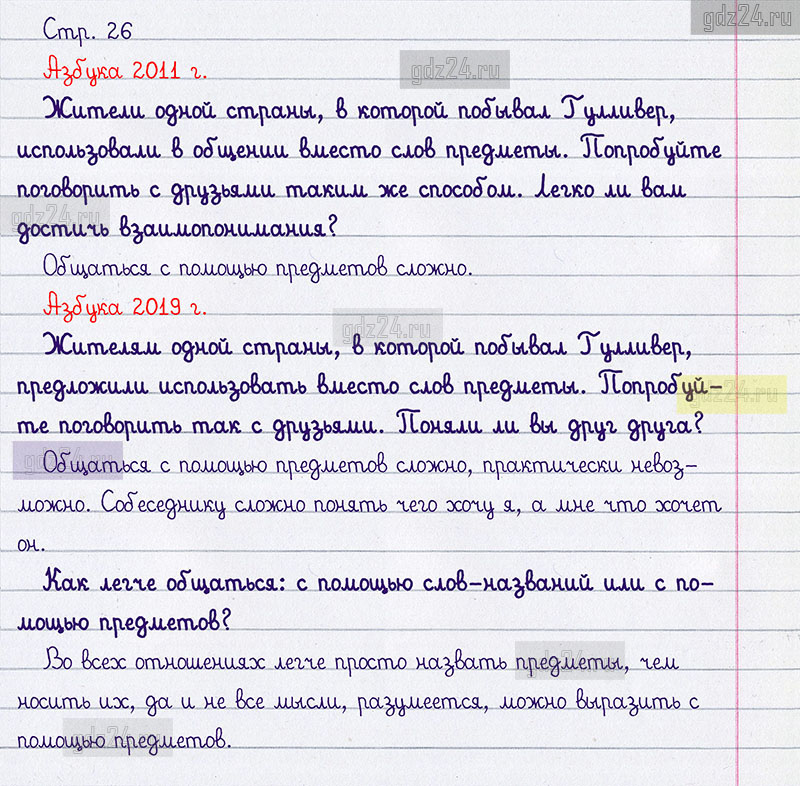 gdz24.ru
Стр. 26
Азбука 2011 г.
gdz24.ru
Жители одной страны, в которой побывал Гулливер,
использовали в общении вместо слов предметы. Попробуйте
поговорить с друзьями таким же способом. Легко ли вам
gdz24.ru
достичь взаимопонимания?
Общаться с помощью предметов сложно.
Азбука 2019 г.
gdz24.ru
Жителям одной страны, в которой побывал Гулливер,
предложили использовать вместо слов предметы. Попробуй-
gdz24.ru
те поговорить так с друзьями. Поняли ли вы друг друга?
gdz24.ru
Общаться с помощью предметов сложно, практически невоз-
можно. Собеседнику сложно понять чего хочу я, а мне что хочет
он.
Как легче общаться: с помощью слов-названий или с по-
мощью предметов?
Во всех отношениях легче просто назвать предметы, чем
gdz24.ru
носить их, да и не все мысли, разумеется, можно выразить с
помощью предметов.
gdz24.ru